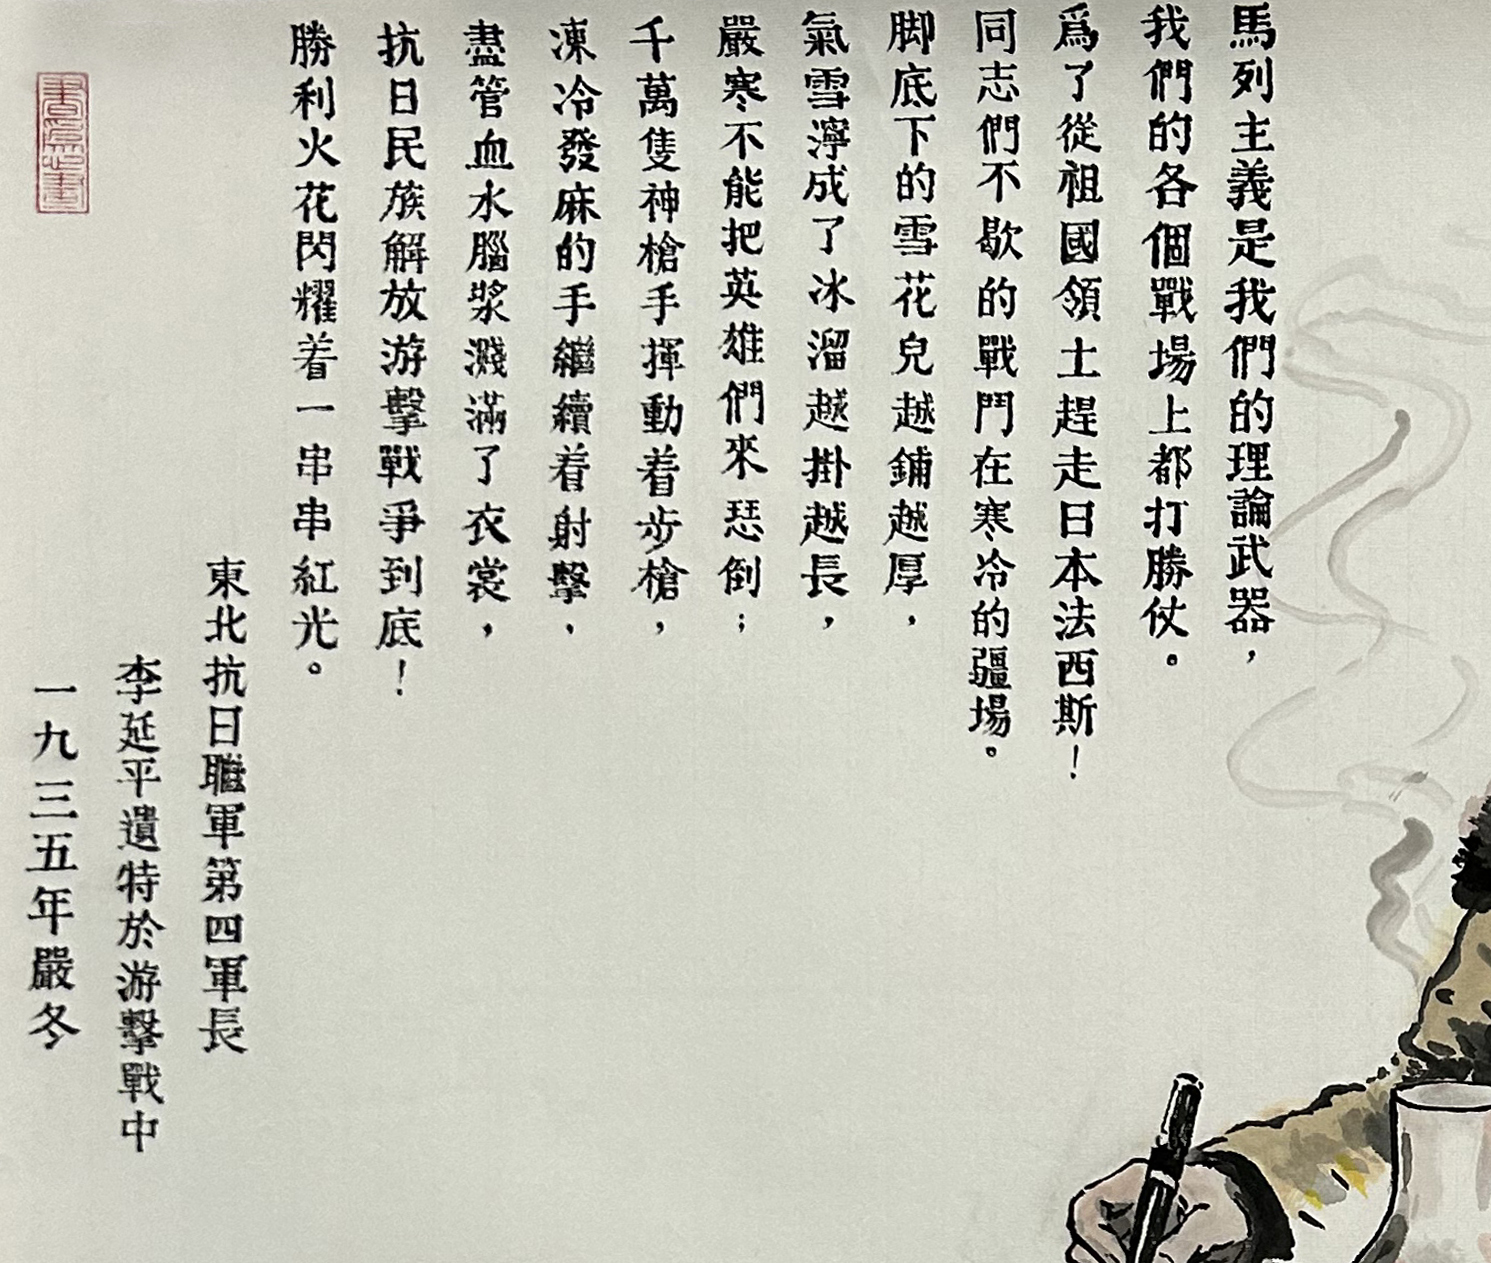 馬列主義是我們的理論武器，
我們的各個戰場上都打勝仗。
爲了從祖國領土趕走日本法西斯！
同志們不歇的戰鬥在寒冷的疆場。
脚底下的雪花兒越鋪越厚，
氣雪濘成了冰溜越掛越長，
嚴寒不能把英雄們來惎倒；
千萬隻神槍手揮動着步槍，
凍冷發麻的手繼續着射擊、
盡管血水腦漿濺滿了衣裳，
抗日民族解放游擊戰爭到底！
勝利火花閃耀着一串串紅光。
東北抗日聯軍第四軍長
李延平遺特於游擊戰中
一九三五年嚴冬